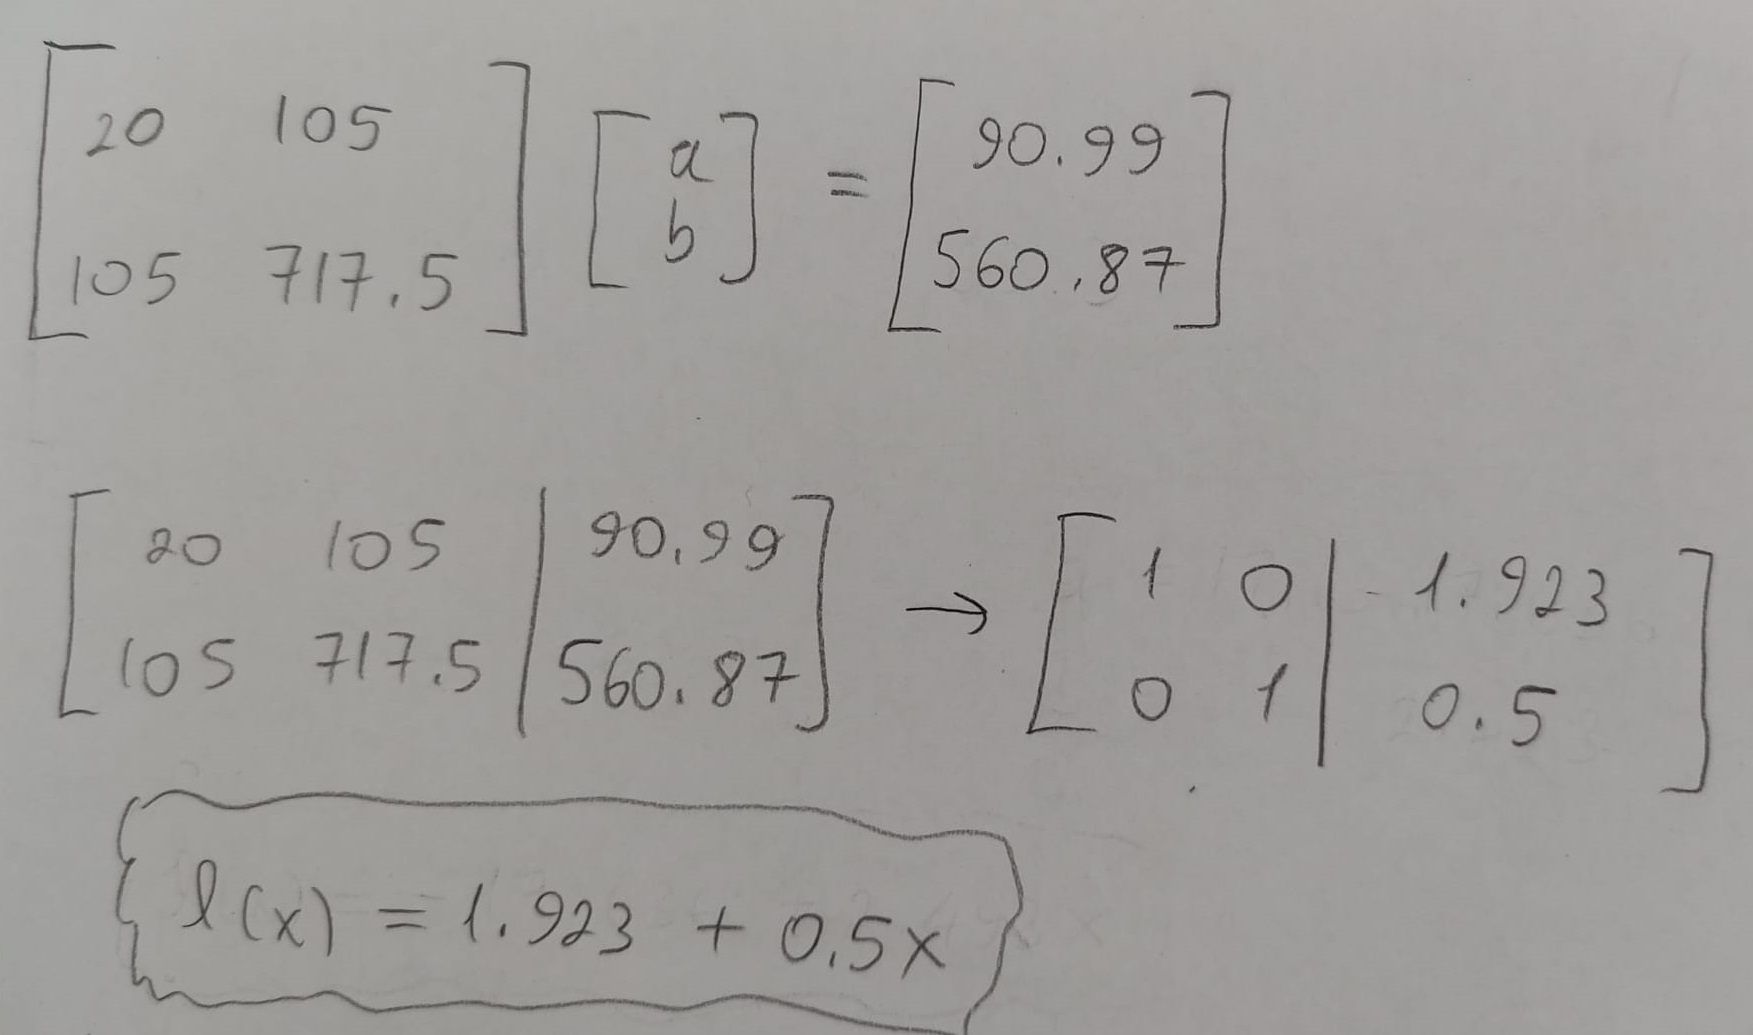 [ 20 105 ; 105 717.5 ] [ a ; b ] = [ 90.99 ; 560.87 ]
[ 20 105 | 90.99 ; 105 717.5 | 560.87 ] → [ 1 0 | 1.923 ; 0 1 | 0.5 ]
l(x) = 1.923 + 0.5x